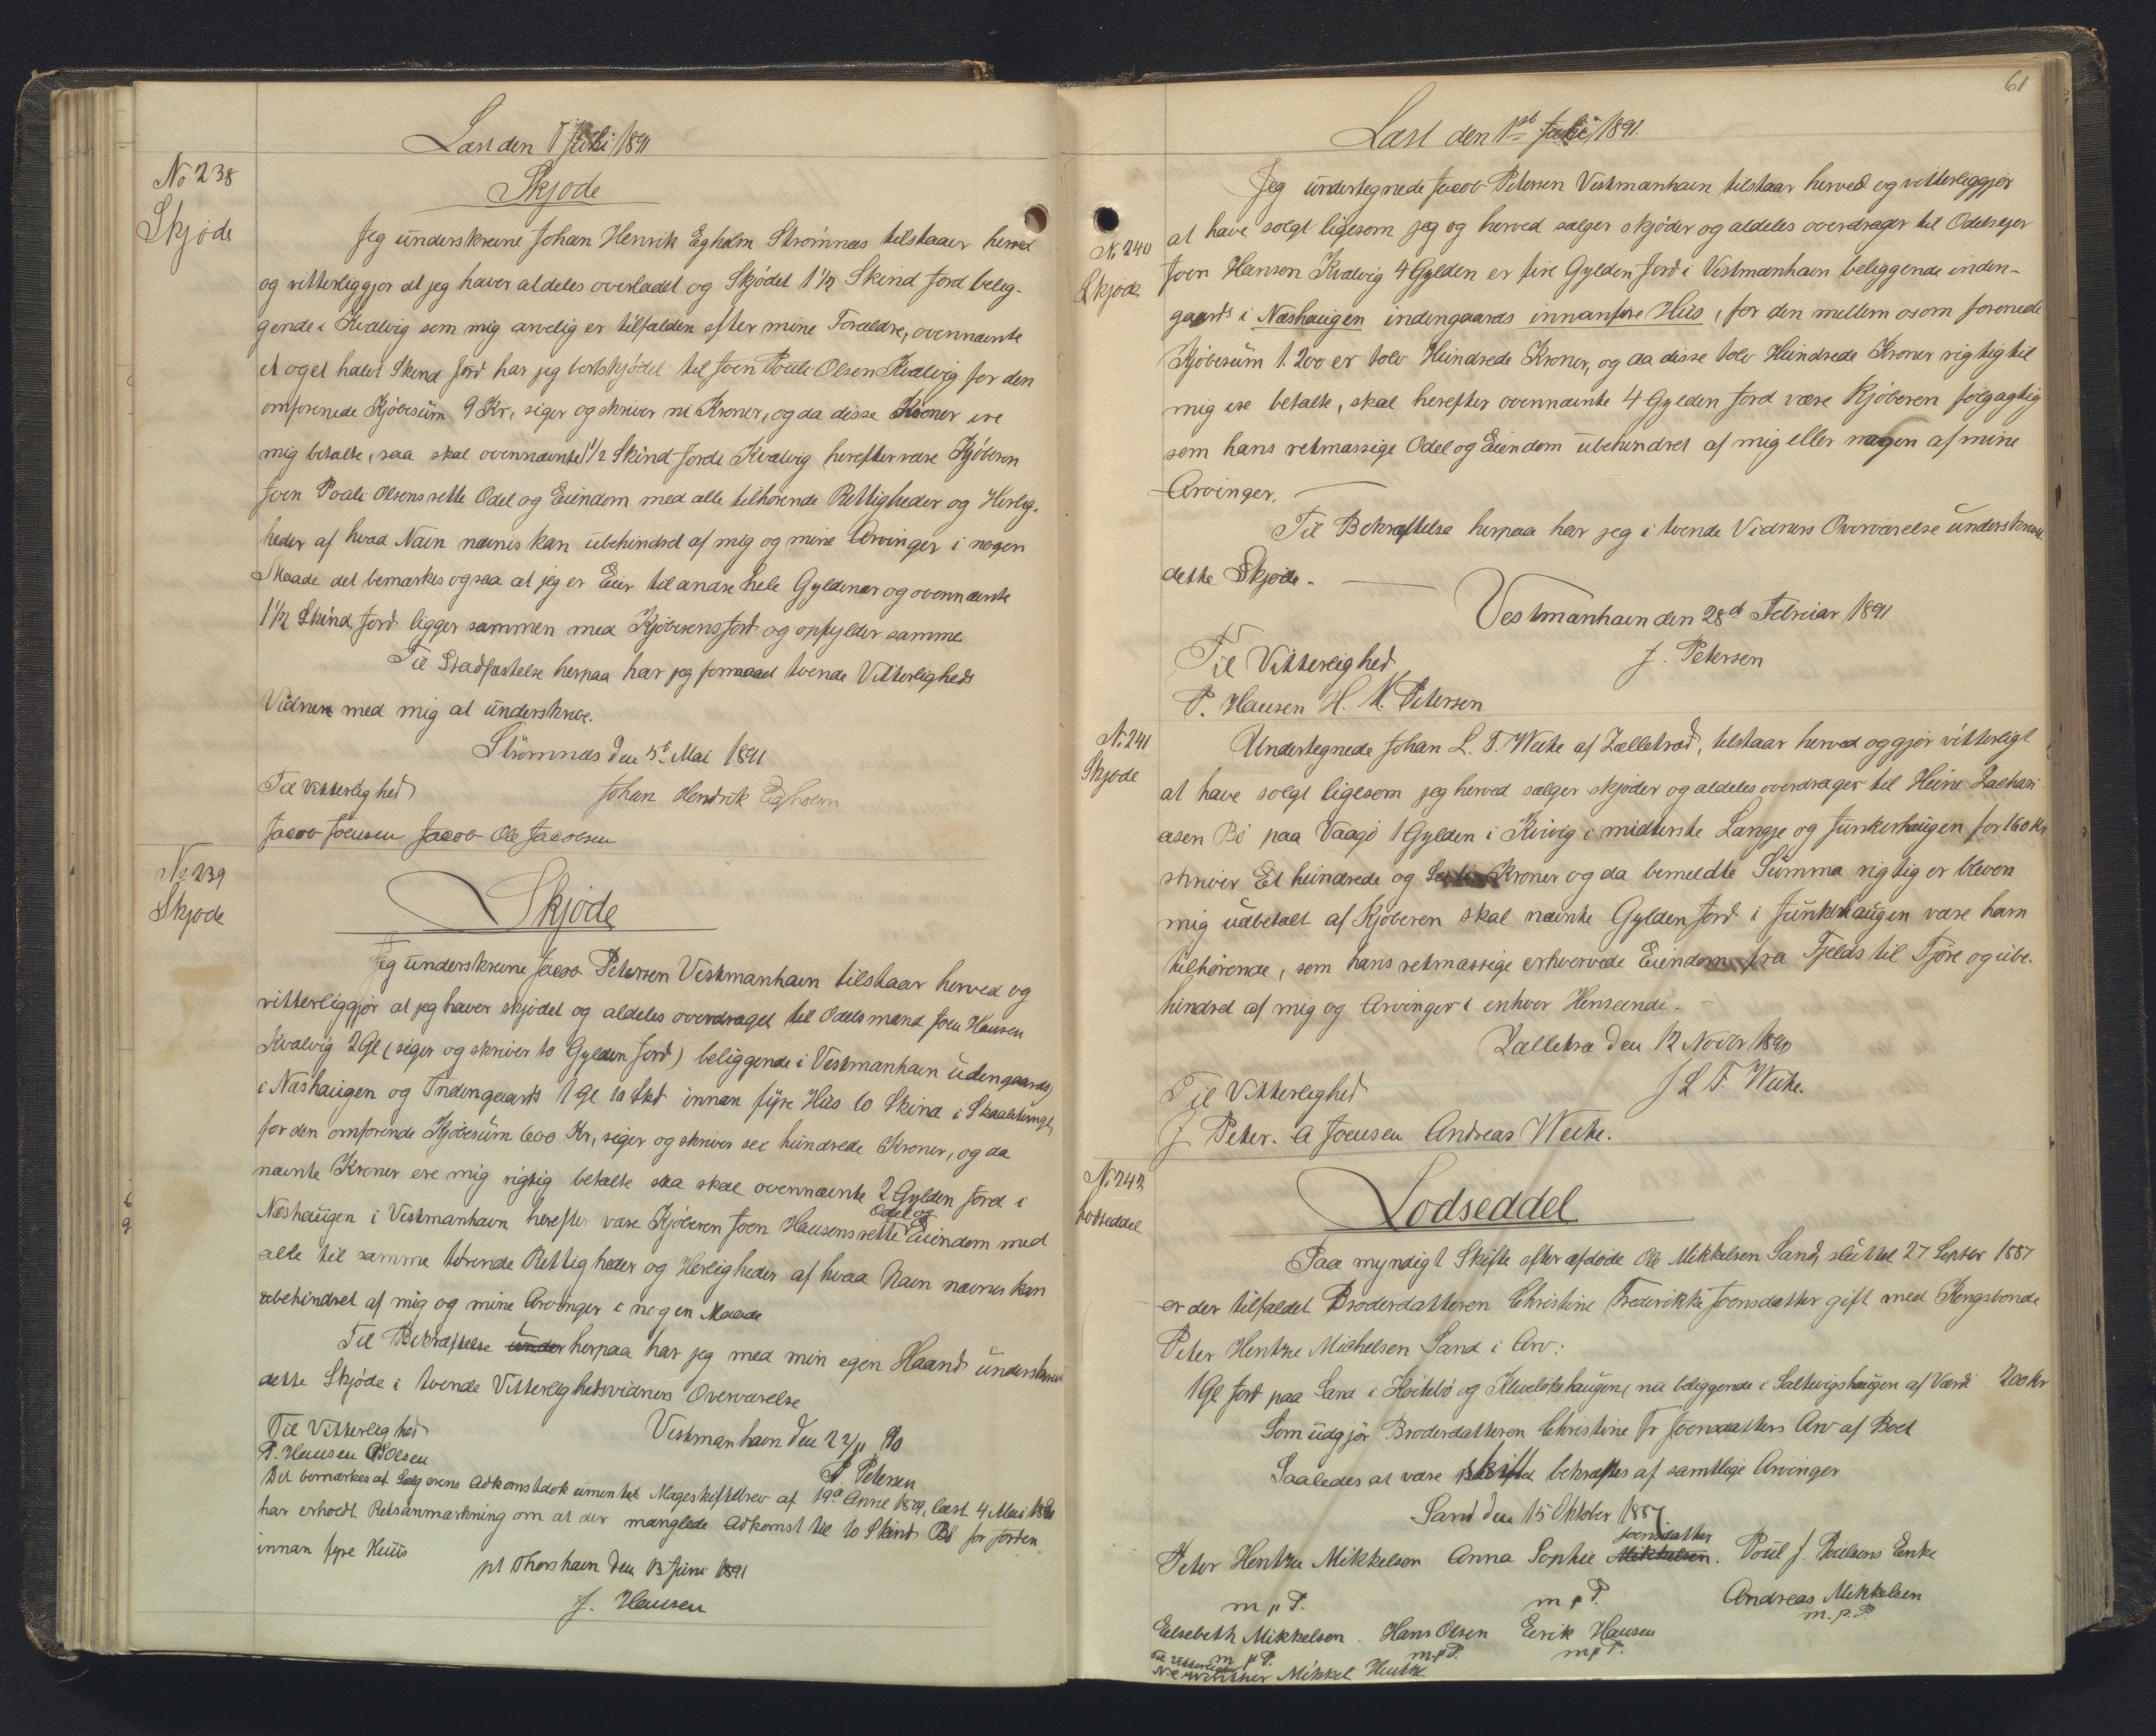 Læst den 1 Juli 1891
No 238
Skjøde
Skjøde
Jeg underskrevne Johan Henrik Egholm Strømnæs tilstaaer herved
og vitterliggjør at jeg haver aldeles overladet og Skjødet 1 1/2 Skind Jord belig-
gende i Kvalvig som mig arvelig er tilfalden efter mine Forældre, ovennævnte
et og et halvt Skind Jord har jeg bortskjødet til Joen Poule Olsen Kvalvig for den
omforenede Kjøbesum 9 Kr, siger og skriver ni Kroner, og da disse Kroner ere
mig betalte, saa skal ovennævnte 1 1/2 Skind Jord i Kvalvig herefter være Kjøberen
Joen Poule Olsens rette Odel og Eiendom med alle tilhørende Rettigheder og Herlig-
heder af hvad Navn nævnes kan ubehindret af mig og mine Arvinger i nogen
Maade det bemærkes ogsaa at jeg er Eier til andre hele Gyldener og ovennævnte
1 1/2 Skind Jord ligger sammen med Kjøberens Jord og opfylder samme
Til Stadfæstelse herpaa har jeg formaaet tvende Vitterligheds
Vidner med mig at underskrive.
Strømnæs den 5t Mai 1891
Til Vitterlighed Johan Hendrik Egholm
Jacob Joensen Jacob Ole Jacobsen
No 239
Skjøde
Skjøde
Jeg underskrevne Jacob Petersen Vestmanhavn tilstaar herved og
vitterliggjør at jeg haver skjødet og aldeles overdraget til Odelsmand Joen Hansen
Kvalvig 2 Gl (siger og skriver to Gylden Jord) beliggende i Vestmanhavn udengaards,
i Næshaugen og Indengaards 1 Gl 10 Skd innan fyre Hus 10 Skind i
for den omforende Kjøbesum 600 Kr, siger og skriver sex hundrede Kroner, og da
nævnte Kroner ere mig rigtig betalte saa skal ovennævnte 2 Gylden Jord i
Næshaugen i Vestmanhavn herefter være Kjøberen Joen Hansens rette Odel og Eiendom med
alle til samme hørende Rettigheder og Herligheder af hvad Navn nævnes kan
ubehindret af mig og mine Arvinger i nogen Maade
Til Bekræftelse under herpaa har jeg med min egen Haand underskrevet
dette Skjøde i tvende Vitterlighedsvidners Overværelse
Til Vitterlighed Vestmanhavn den 22/11 90
P. Hansen Olsen P. Petersen
Det bemærkes at Sælgerens Adkomstdokumentet Mageskiftebrev af 19d April 1879, læst 4 Mai
har erholdt Retsanmærkning om at der manglede Adkomst til 10 Skind Bø for Jorden
innan fyre Huus
pt Thorshavn den 13 Juni 1891
J. Hansen
61
Læst den 1st Juli 1891.
N. 240
Skjøde
Jeg undertegnede Jacob Petersen Vestmanhavn tilstaar herved og vitterliggjør
at have solgt ligesom jeg og herved sælger skjøder og aldeles overdrager til Odelsejer
Joen Hansen Kvalvig 4 Gylden er fire Gylden Jord i Vestmanhavn beliggende inden-
gaards i Næshaugen indengaards innanfyre Hús, for den mellem os om forenede
Kjøbesum 1.200 er tolv Hundrede Kroner, og da disse tolv Hundrede Kroner rigtig til
mig ere betalte, skal herefter ovennævnte 4 Gylden Jord være Kjøberen følgagtig
som hans retmæssige Odel og Eiendom ubehindret af mig eller nogen af mine
Arvinger.
Til Bekræftelse herpaa har jeg i tvende Vidners Overværelse underskrevet
dette Skjøde.
Vestmanhavn den 28d Februar 1891
Til Vitterlighed J. Petersen
P. Hansen H. M. Petersen
N. 241
Skjøde
Undertegnede Johan L. T. Weihe af Zælletræd, tilstaar herved og gjør vitterligt
at have solgt ligesom jeg herved sælger skjøder og aldeles overdrager til Heine Zachari-
asen Bø paa Vaagø 1 Gylden i Kvivig i midterste Langje og Junkerhaugen for 160 Kr
skriver Et hundrede og Kroner og da bemeldte Summa rigtig er bleven
mig udbetalt af Kjøberen skal nævnte Gylden Jord i Junkerhaugen være ham
tilhørende, som hans retmæssige erhvervede Eiendom fra Fjelds til Fjøre og ube-
hindret af mig og Arvinger i enhver Henseende.
Zælletræ den 12 Novbr 1890
Til Vitterlighed J L T. Weihe.
J Peter. A Joensen Andreas Weihe.
N. 242
Lodseddel
Lodseddel
Paa myndigt Skifte efter afdøde Ole Mikkelsen Sand, sluttet 27 Septbr 1887
er der tilfaldet Broderdatteren Christine Frederikke Joensdatter gift med Kongsbonde
Peter Hentze Michelsen Sand i Arv:
1 Gl Jord paa Sand i og nu beliggende i Saltvigshaugen af Værdi 200 Kr
Som udgjør Broderdatteren Christine Fr Joensdatters Arv af Boet
Saaledes at være skiftet bekræftes af samtlige Arvinger
Sand den 15 Oktober 1887
Peter Hentze Mikkelsen Anna Sophie Mikkelsen Joensdatter. Poul J. Poulsens Enke
m p P. m p P. Andreas Mikkelsen
m. p. P.
Elsebeth Mikkelsen. Hans Olsen Eirik Hansen
m p P. m p P. m p P.
Til Vitterlighed
Winther Mikkel Hentze